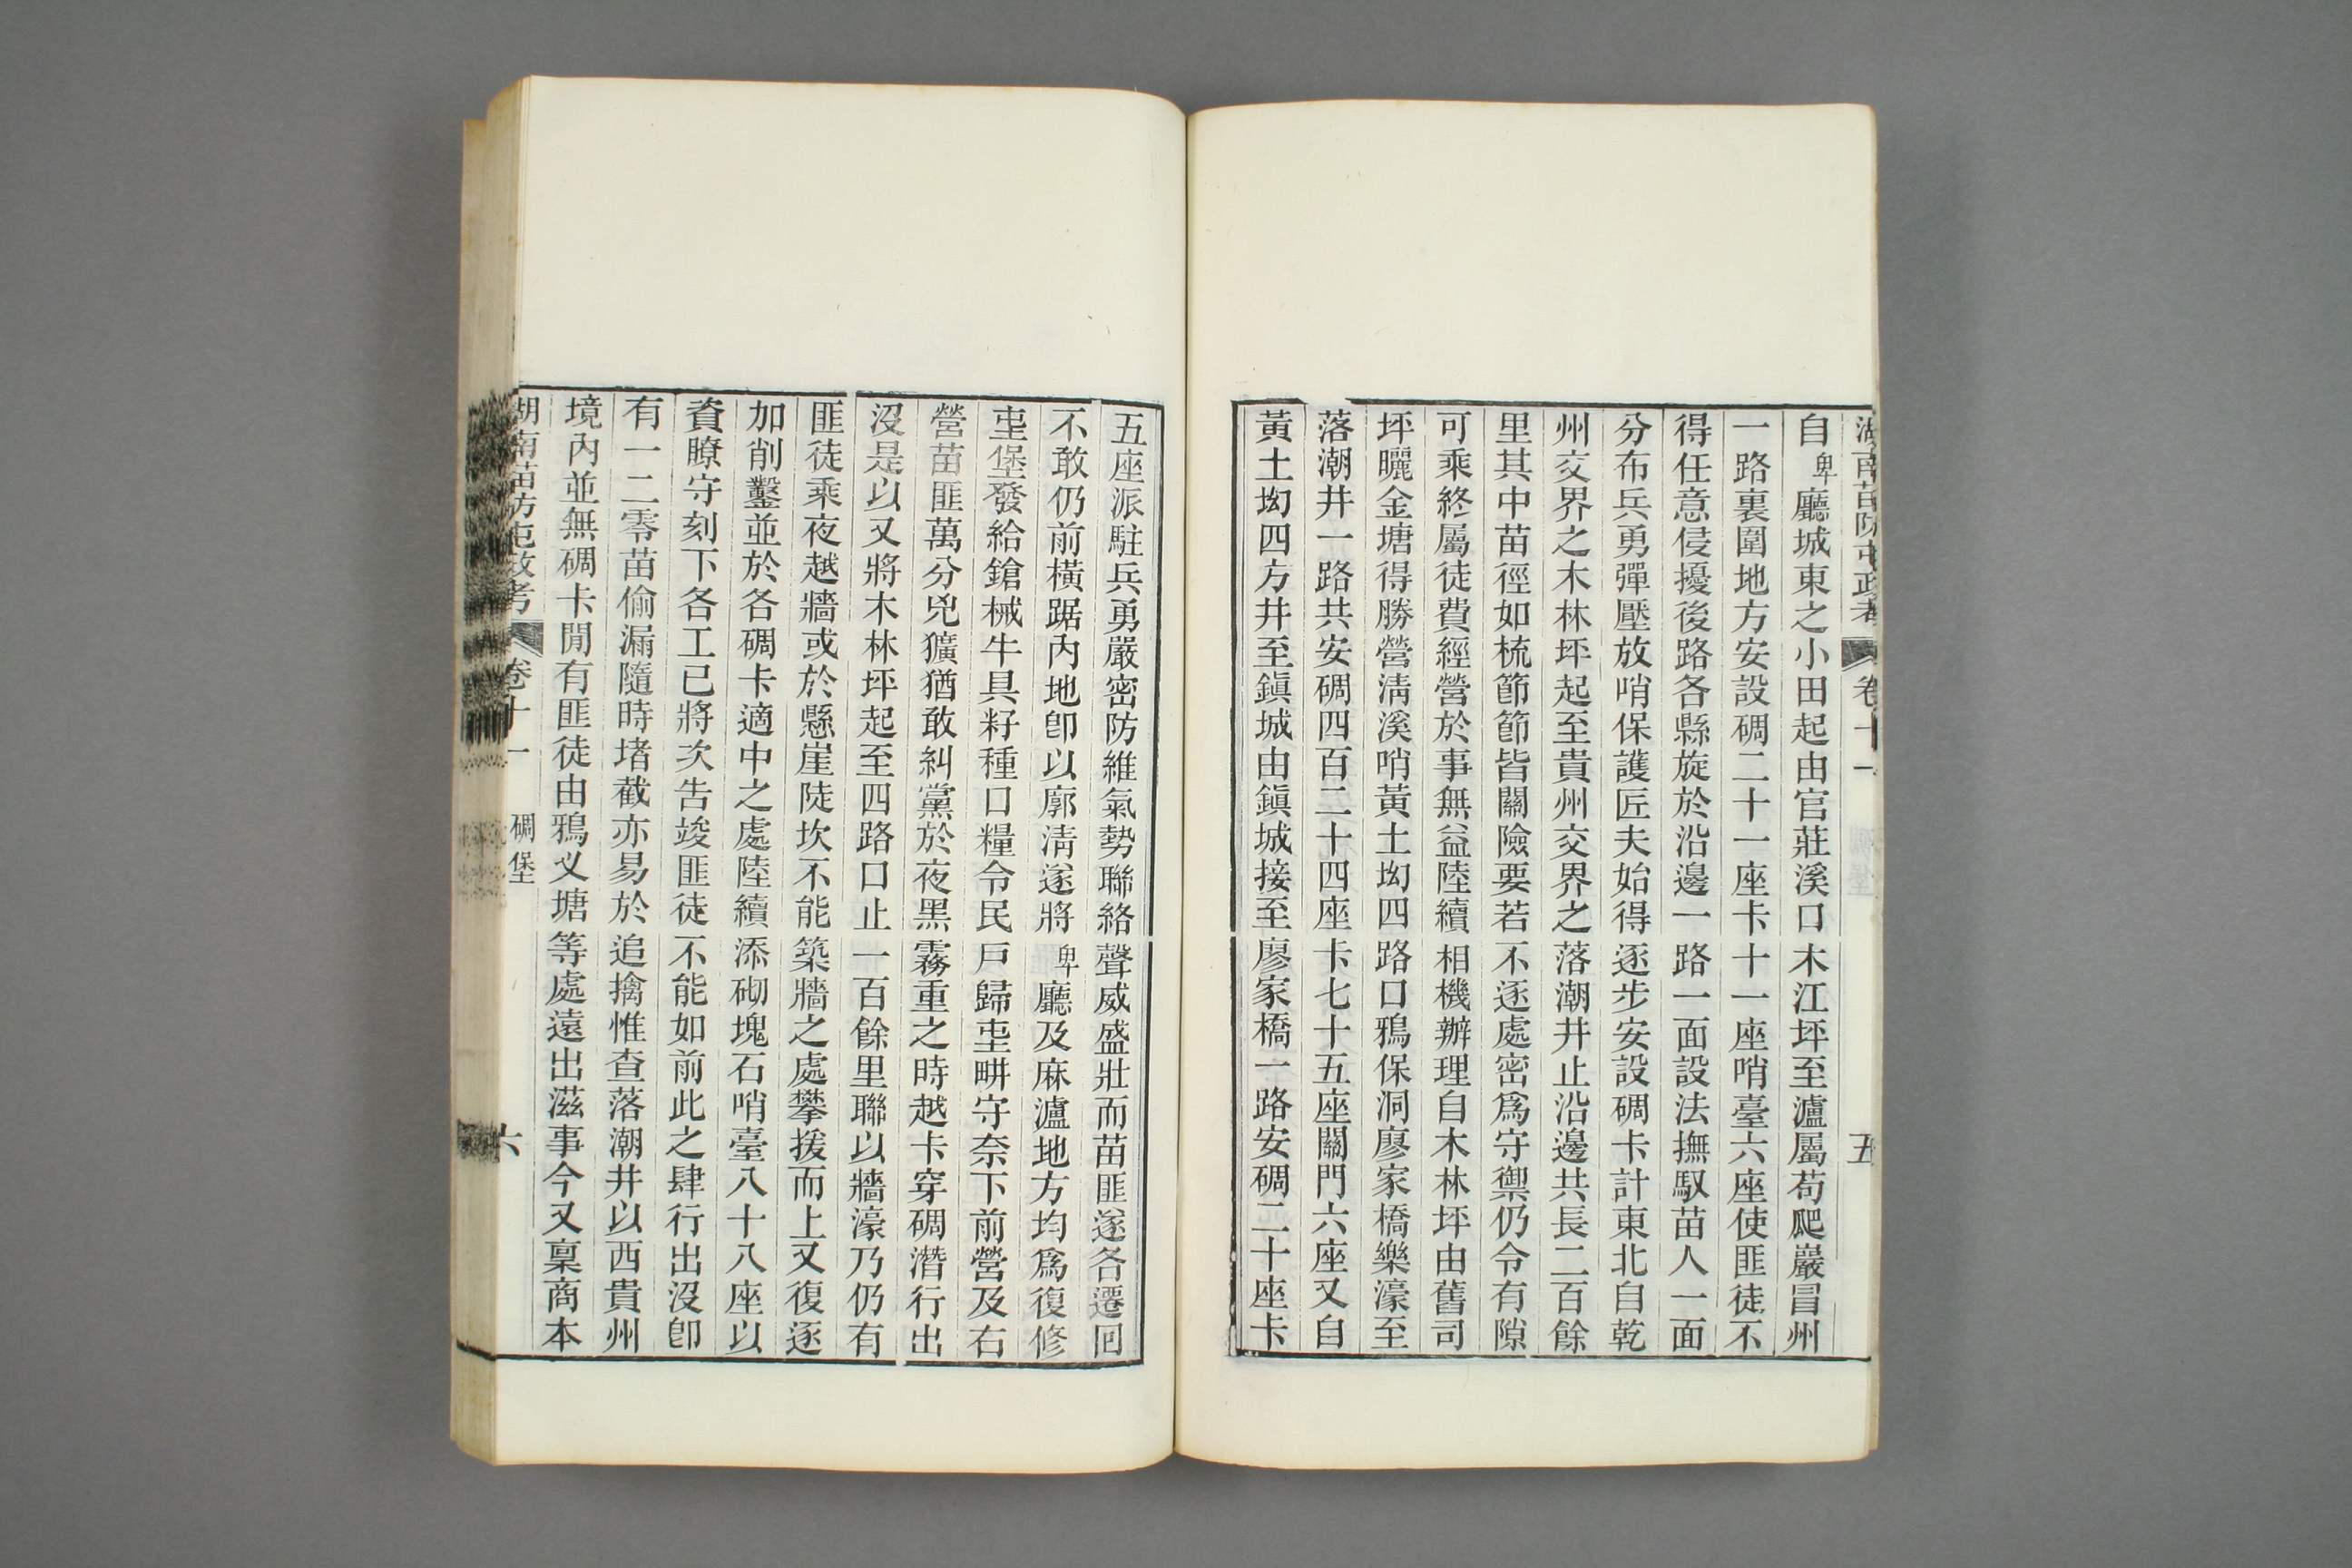 湖南苗防屯政考 卷十一 五
自卑廳城東之小田起由官莊溪口木江坪至瀘屬苟爬巖冒州
一路裏圍地方安設碉二十一座卡十一座哨臺六座使匪徒不
得任意侵擾後路各縣旋於沿邊一路一面設法撫馭苗人一面
分布兵勇彈壓放哨保護匠夫始得逐步安設碉卡計東北自乾
州交界之木林坪起至貴州交界之落潮井止沿邊共長二百餘
里其中苗徑如梳節節皆關險要若不逐處密爲守禦仍令有隙
可乘終屬徒費經營於事無益陸續相機辦理自木林坪由舊司
坪曬金塘得勝營淸溪哨黃土坳四路口鴉保洞廖家橋樂濠至
落潮井一路共安碉四百二十四座卡七十五座關門六座又自
黃土坳四方井至鎭城由鎭城接至廖家橋一路安碉二十座卡
五座派駐兵勇嚴密防維氣勢聯絡聲威盛壯而苗匪遂各遷回
不敢仍前橫踞內地卽以廓淸遂將卑廳及麻瀘地方均爲復修
屯堡發給鎗械牛具籽種口糧令民戶歸屯畊守奈下前營及右
營苗匪萬分兇獷猶敢糾黨於夜黑霧重之時越卡穿碉潛行出
沒是以又將木林坪起至四路口止一百餘里聯以牆濠乃仍有
匪徒乘夜越牆或於懸崖陡坎不能築牆之處攀援而上又復逐
加削鑿並於各碉卡適中之處陸續添砌塊石哨臺八十八座以
資瞭守刻下各工已將次告竣匪徒不能如前此之肆行出沒卽
有一二零苗偷漏隨時堵截亦易於追擒惟查落潮井以西貴州
境內並無碉卡閒有匪徒由鴉乂塘等處遠出滋事今又稟商本
湖南苗防屯政考 卷十一 碉堡 六